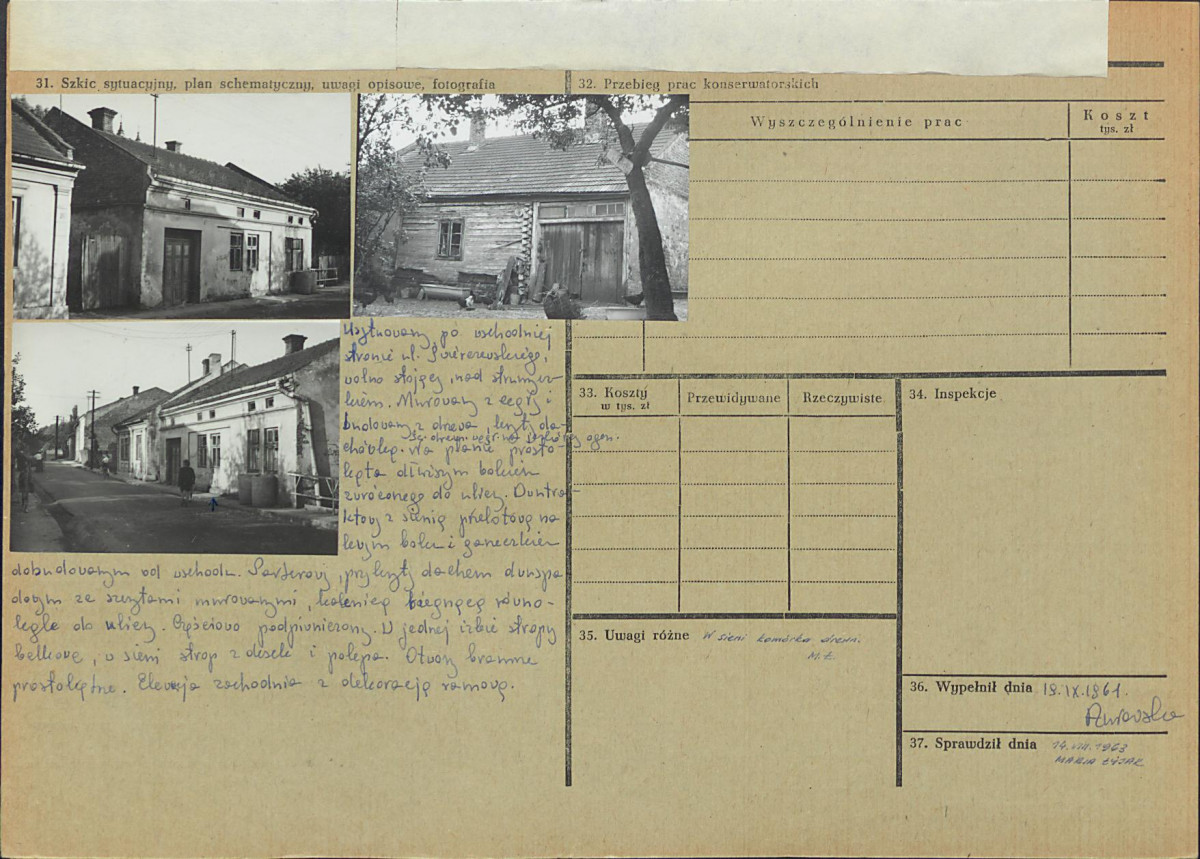 31. Szkic sytuacyjny, plan schematyczny, uwagi opisowe, fotografia
Usytuowany po wschodniej
stronie ul. Świerczewskiego,
wolno stojący, nad strumy-
kiem. Murowany z cegły i
budowany z drewna, kryty da-
chówką. Na planie prosto-
kąta dłuższym bokiem
zwróconego do ulicy. Dwutra-
ktowy z sienią przelotową na
lewym boku i ganeczkiem
dobudowanym od wschodu. Parterowy, przykryty dachem dwuspa-
dowym ze szczytami murowanymi, kalenicą biegnącą równo-
legle do ulicy. Częściowo podpiwniczony. W jednej izbie stropy
belkowe, w sieni strop z desek i polepa. Otwory bramne
prostokątne. Elewacja zachodnia z dekoracją ramową.
32. Przebieg prac konserwatorskich
Wyszczególnienie prac
Koszt
tys. zł
33. Koszty
w tys. zł
Przewidywane
Rzeczywiste
34. Inspekcje
35. Uwagi różne W sieni komórka drewn.
M.Ł.
36. Wypełnił dnia 19.IX.1961.
37. Sprawdził dnia 14.VIII.1963
MARIA ŁYJAK